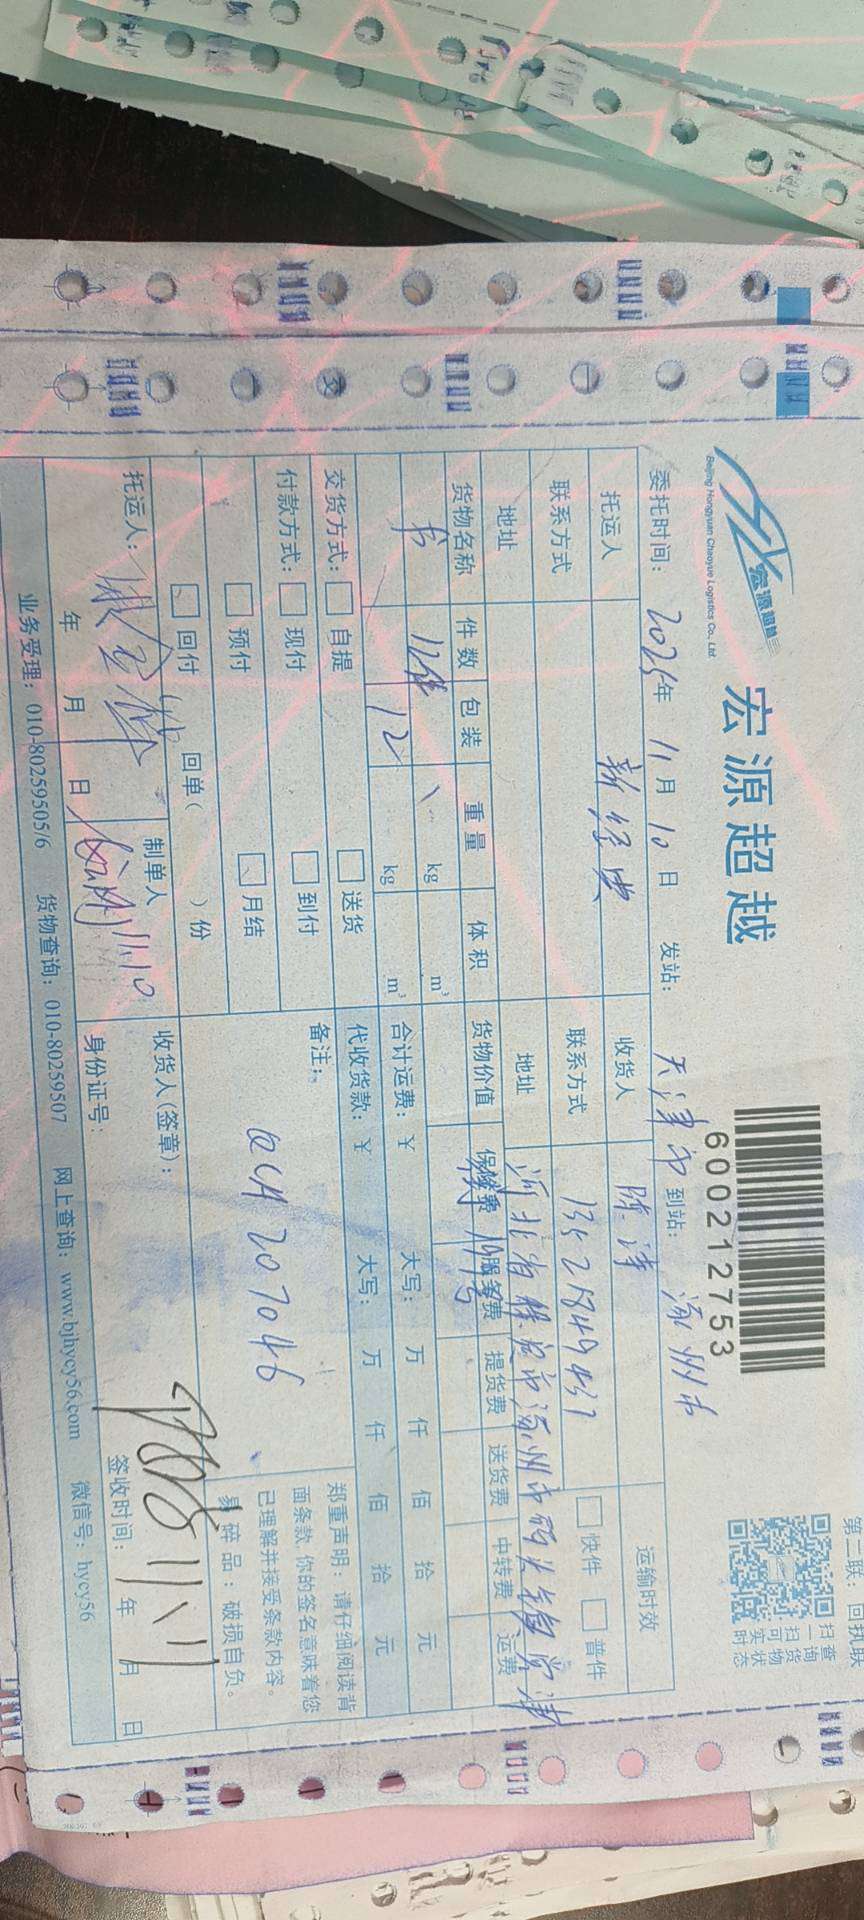 第二联：回执联
宏源超越
Beijing Hongyuan Chaoyue Logistics Co., Ltd
宏源超越
600212753
扫一扫可实时
查询货物状态
委托时间： 2025年 11月 10日 发站： 天津市 到站： 涿州市
托运人 新经典 收货人 陈涛 运输时效
联系方式 联系方式 13521849437 快件 普件
地址 地址 河北省保定市涿州市码头镇
货物名称 件数 包装 重量 体积 货物价值 保险费 服务费 提货费 送货费 中转费 运费
书 12件 kg m³
12 kg m³ 合计运费：￥ 大写： 万 仟 佰 拾 元
交货方式： 自提 送货 代收货款：￥ 大写： 万 仟 佰 拾 元
付款方式： 现付 到付 备注：
预付 月结 QCA207046
回付 回单（ ）份
郑重声明：请仔细阅读背
面条款，你的签名意味着您
已理解并接受条款内容。
易碎品：破损自负。
托运人： 制单人 11.10 收货人（签章）：
年 月 日 身份证号： 签收时间： 年 月 日
11.11
业务受理：010-80259505/6 货物查询：010-80259507 网上查询：www.bjhycy56.com 微信号：hycy56